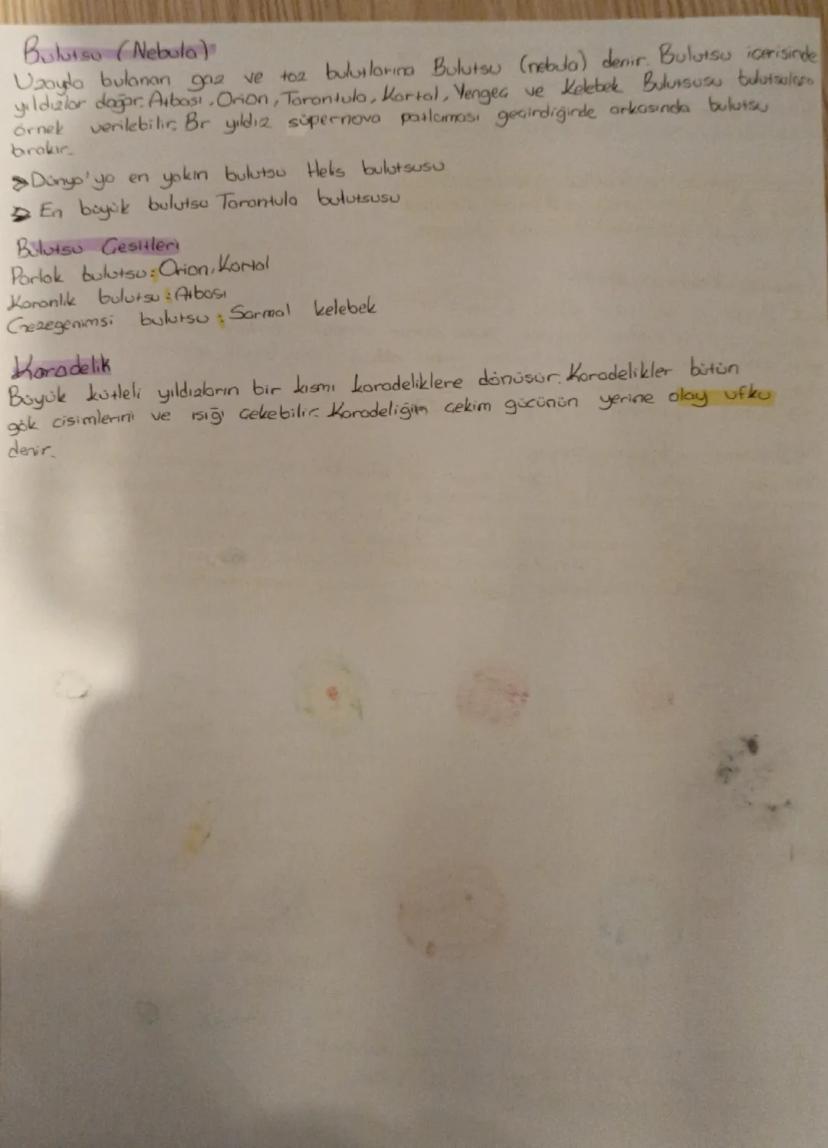 Bulutsu (Nebula)
Uzayda bulunan gaz ve toz bulutlarına Bulutsu (nebula) denir. Bulutsu içerisinde
yıldızlar doğar. Atbaşı, Orion, Tarantula, Kartal, Yengeç ve Kelebek Bulutsusu
örnek verilebilir. Br yıldız süpernova patlaması geçirdiğinde arkasında bulutsu
bırakır.
Dünya'ya en yakın bulutsu Heliks bulutsusu
En büyük bulutsu Tarantula bulutsusu
Bulutsu Çeşitleri
Parlak bulutsu: Orion, Kartal
Karanlık bulutsu: Atbaşı
Gezegenimsi bulutsu: Sarmal kelebek
Karadelik
Büyük kütleli yıldızların bir kısmı karadeliklere dönüşür. Karadelikler bütün
gök cisimlerini ve ışığı çekebilir. Karadeliğin çekim gücünün yerine olay ufku
denir.